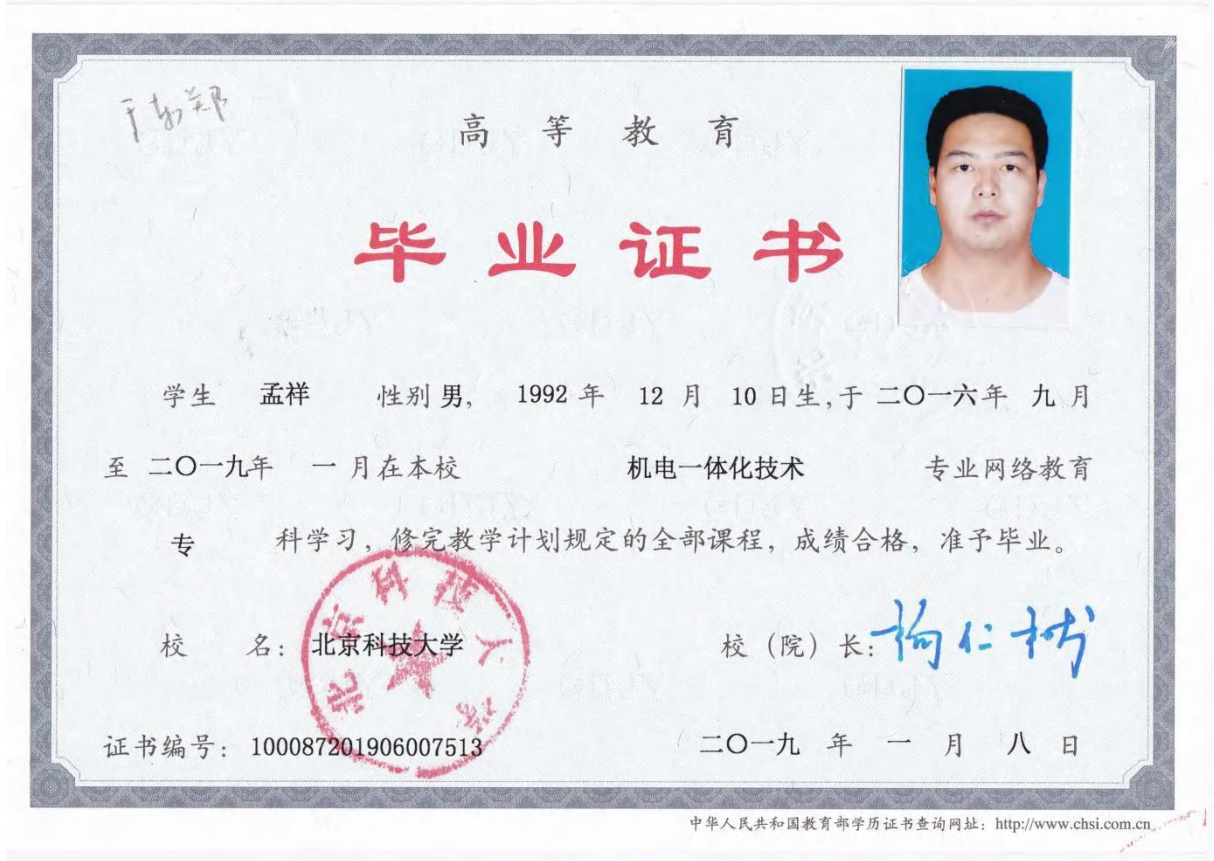 高等教育
毕业证书
学生 孟祥 性别 男, 1992 年 12 月 10 日生,于 二〇一六年 九 月
至 二〇一九年 一 月在本校 机电一体化技术 专业网络教育
专 科学习,修完教学计划规定的全部课程,成绩合格,准予毕业。
校 名: 北京科技大学 校(院)长:杨仁树
北京科技大学
证书编号: 100087201906007513 二〇一九 年 一 月 八 日
中华人民共和国教育部学历证书查询网址:http://www.chsi.com.cn